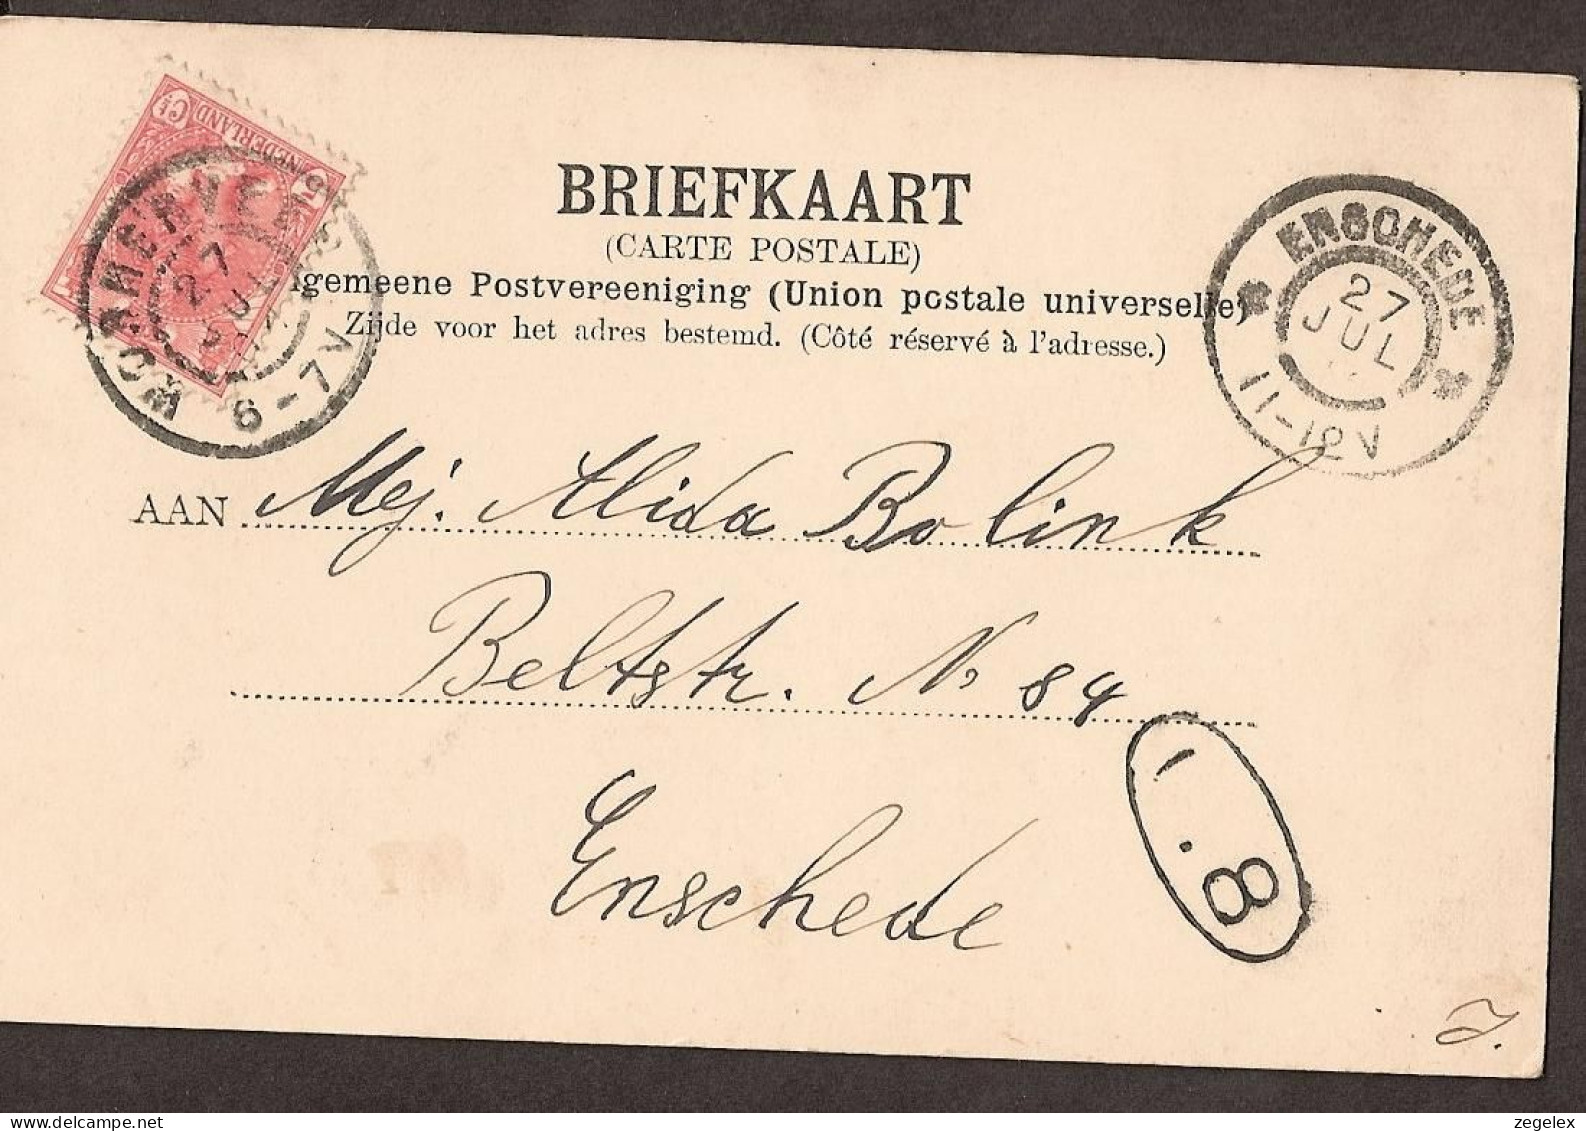 5 Ct NEDERLAND 5
WORMERVEER
27 JUL
6-7V
BRIEFKAART
(CARTE POSTALE)
lgemeene Postvereeniging (Union postale universelle)
Zijde voor het adres bestemd. (Côté réservé à l'adresse.)
ENSCHEDE
27 JUL
11-12V
AAN Mej. Alida Bolink
Beltstr. No 84
Enschede
8
J.
zegelex